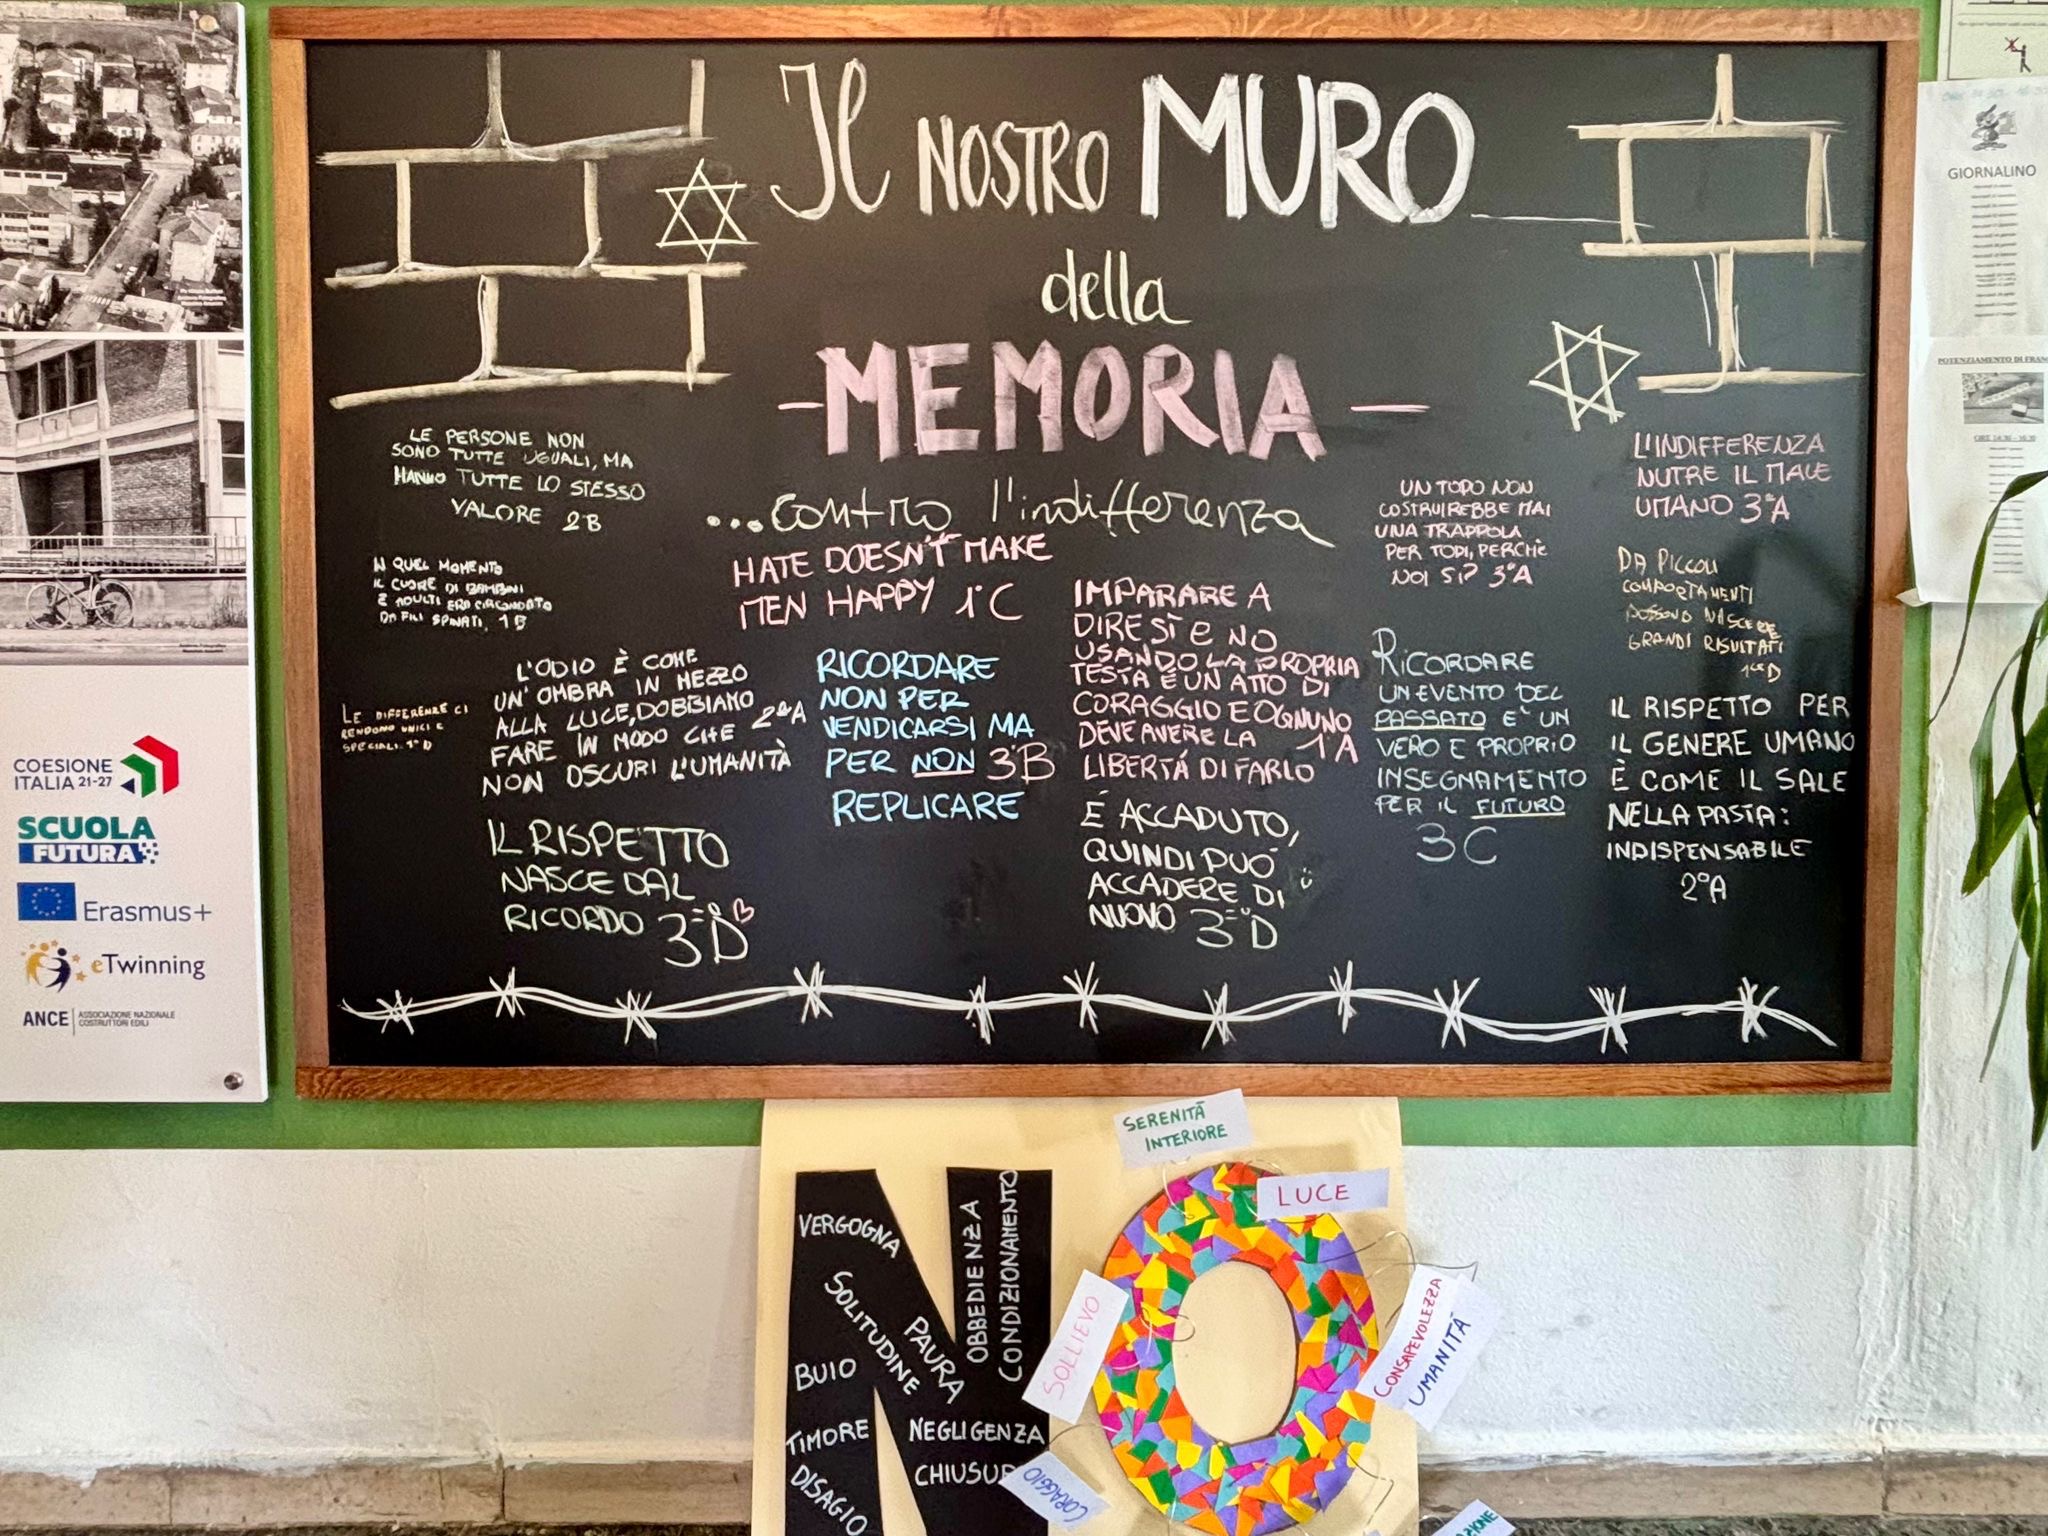 Il NOSTRO MURO
della
-MEMORIA-
...contro l'indifferenza
LE PERSONE NON
SONO TUTTE UGUALI, MA
HANNO TUTTE LO STESSO
VALORE 2B
IN QUEL MOMENTO
IL CUORE DI BAMBINI
E ADULTI ERA CIRCONDATO
DA FILI SPINATI, 1B
LE DIFFERENZE CI
RENDONO UNICI E
SPECIALI. 1°D
L'ODIO È COME
UN'OMBRA IN MEZZO
ALLA LUCE, DOBBIAMO 2ªA
FARE IN MODO CHE
NON OSCURI L'UMANITÀ
IL RISPETTO
NASCE DAL
RICORDO 3D
HATE DOESN'T MAKE
MEN HAPPY 1°C
RICORDARE
NON PER
VENDICARSI MA
PER NON 3B
REPLICARE
IMPARARE A
DIRE SÌ E NO
USANDO LA PROPRIA
TESTA É UN ATTO DI
CORAGGIO E OGNUNO
DEVE AVERE LA 1°A
LIBERTÁ DI FARLO
É ACCADUTO,
QUINDI PUÒ
ACCADERE DI
NUOVO 3D
UN TOPO NON
COSTRUIREBBE MAI
UNA TRAPPOLA
PER TOPI, PERCHÈ
NOI SI? 3°A
RICORDARE
UN EVENTO DEL
PASSATO E' UN
VERO E PROPRIO
INSEGNAMENTO
PER IL FUTURO
3C
L'INDIFFERENZA
NUTRE IL MALE
UMANO 3ªA
DA PICCOLI
COMPORTAMENTI
POSSONO NASCERE
GRANDI RISULTATI
1ªD
IL RISPETTO PER
IL GENERE UMANO
È COME IL SALE
NELLA PASTA:
INDISPENSABILE
2°A
COESIONE
ITALIA 21-27
SCUOLA
FUTURA
Erasmus+
eTwinning
ANCE ASSOCIAZIONE NAZIONALE
COSTRUTTORI EDILI
GIORNALINO
POTENZIAMENTO DI
SERENITÀ
INTERIORE
LUCE
SOLLIEVO
CONSAPEVOLEZZA
UMANITÀ
CORAGGIO
VERGOGNA
SOLITUDINE
PAURA
OBBEDIENZA
CONDIZIONAMENTO
BUIO
TIMORE
DISAGIO
NEGLIGENZA